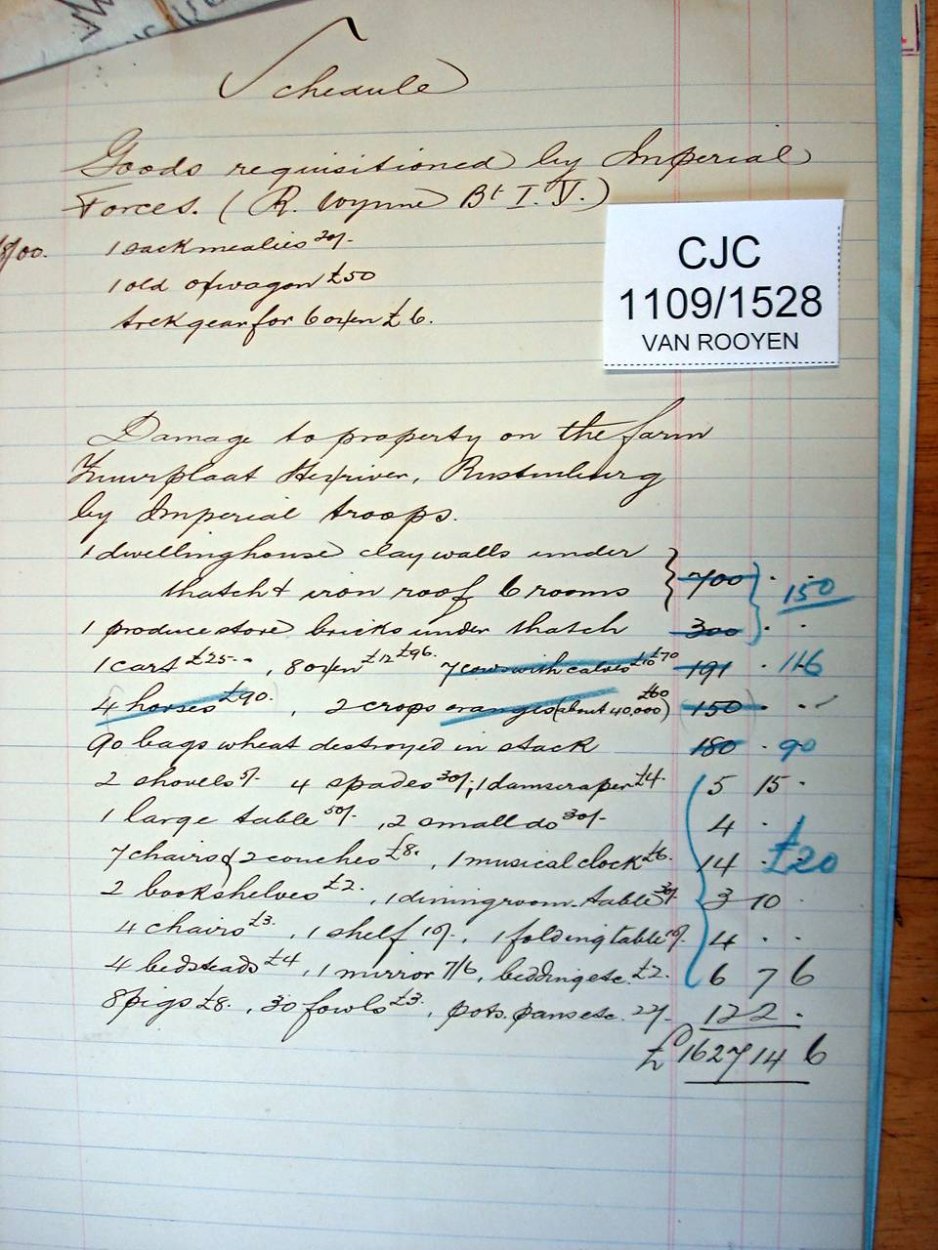 Schedule
Goods requisitioned by Imperial
Forces. (R. Wynne Bt I. Y.)
/00. 1 sack mealies 20/-
1 old oxwagon £50
trek gear for 6 oxen £6.
CJC
1109/1528
VAN ROOYEN
Damage to property on the farm
Zuurplaat Hexriver, Rustenburg
by Imperial troops.
1 dwelling house clay walls under
thatch & iron roof 6 rooms 700 . . 150
1 produce store bricks under thatch 300 . .
1 cart £25 - - , 8 oxen £12 £96. 7 cows with calves £10 £70 191 . 116
4 horses £90. , 2 crops oranges (about 40,000) £60 150 . .
90 bags wheat destroyed in stack 180 . 90
2 shovels 5/- 4 spades 30/-, 1 damscraper £4. 5 15 .
1 large table 50/- , 2 small do 30/- 4 .
7 chairs & 2 couches £8. , 1 musical clock £6. 14 . £20
2 bookshelves £2. , 1 diningroom table 30/- 3 10 .
4 chairs £3. , 1 shelf 10/-. , 1 folding table 10/- 4 . .
4 bedsteads £4 , 1 mirror 7/6 , bedding etc. £2. 6 7 6
8 pigs £8. , 30 fowls £3. , pots. pans etc. 22/- 12 2 .
£ 1627 14 6